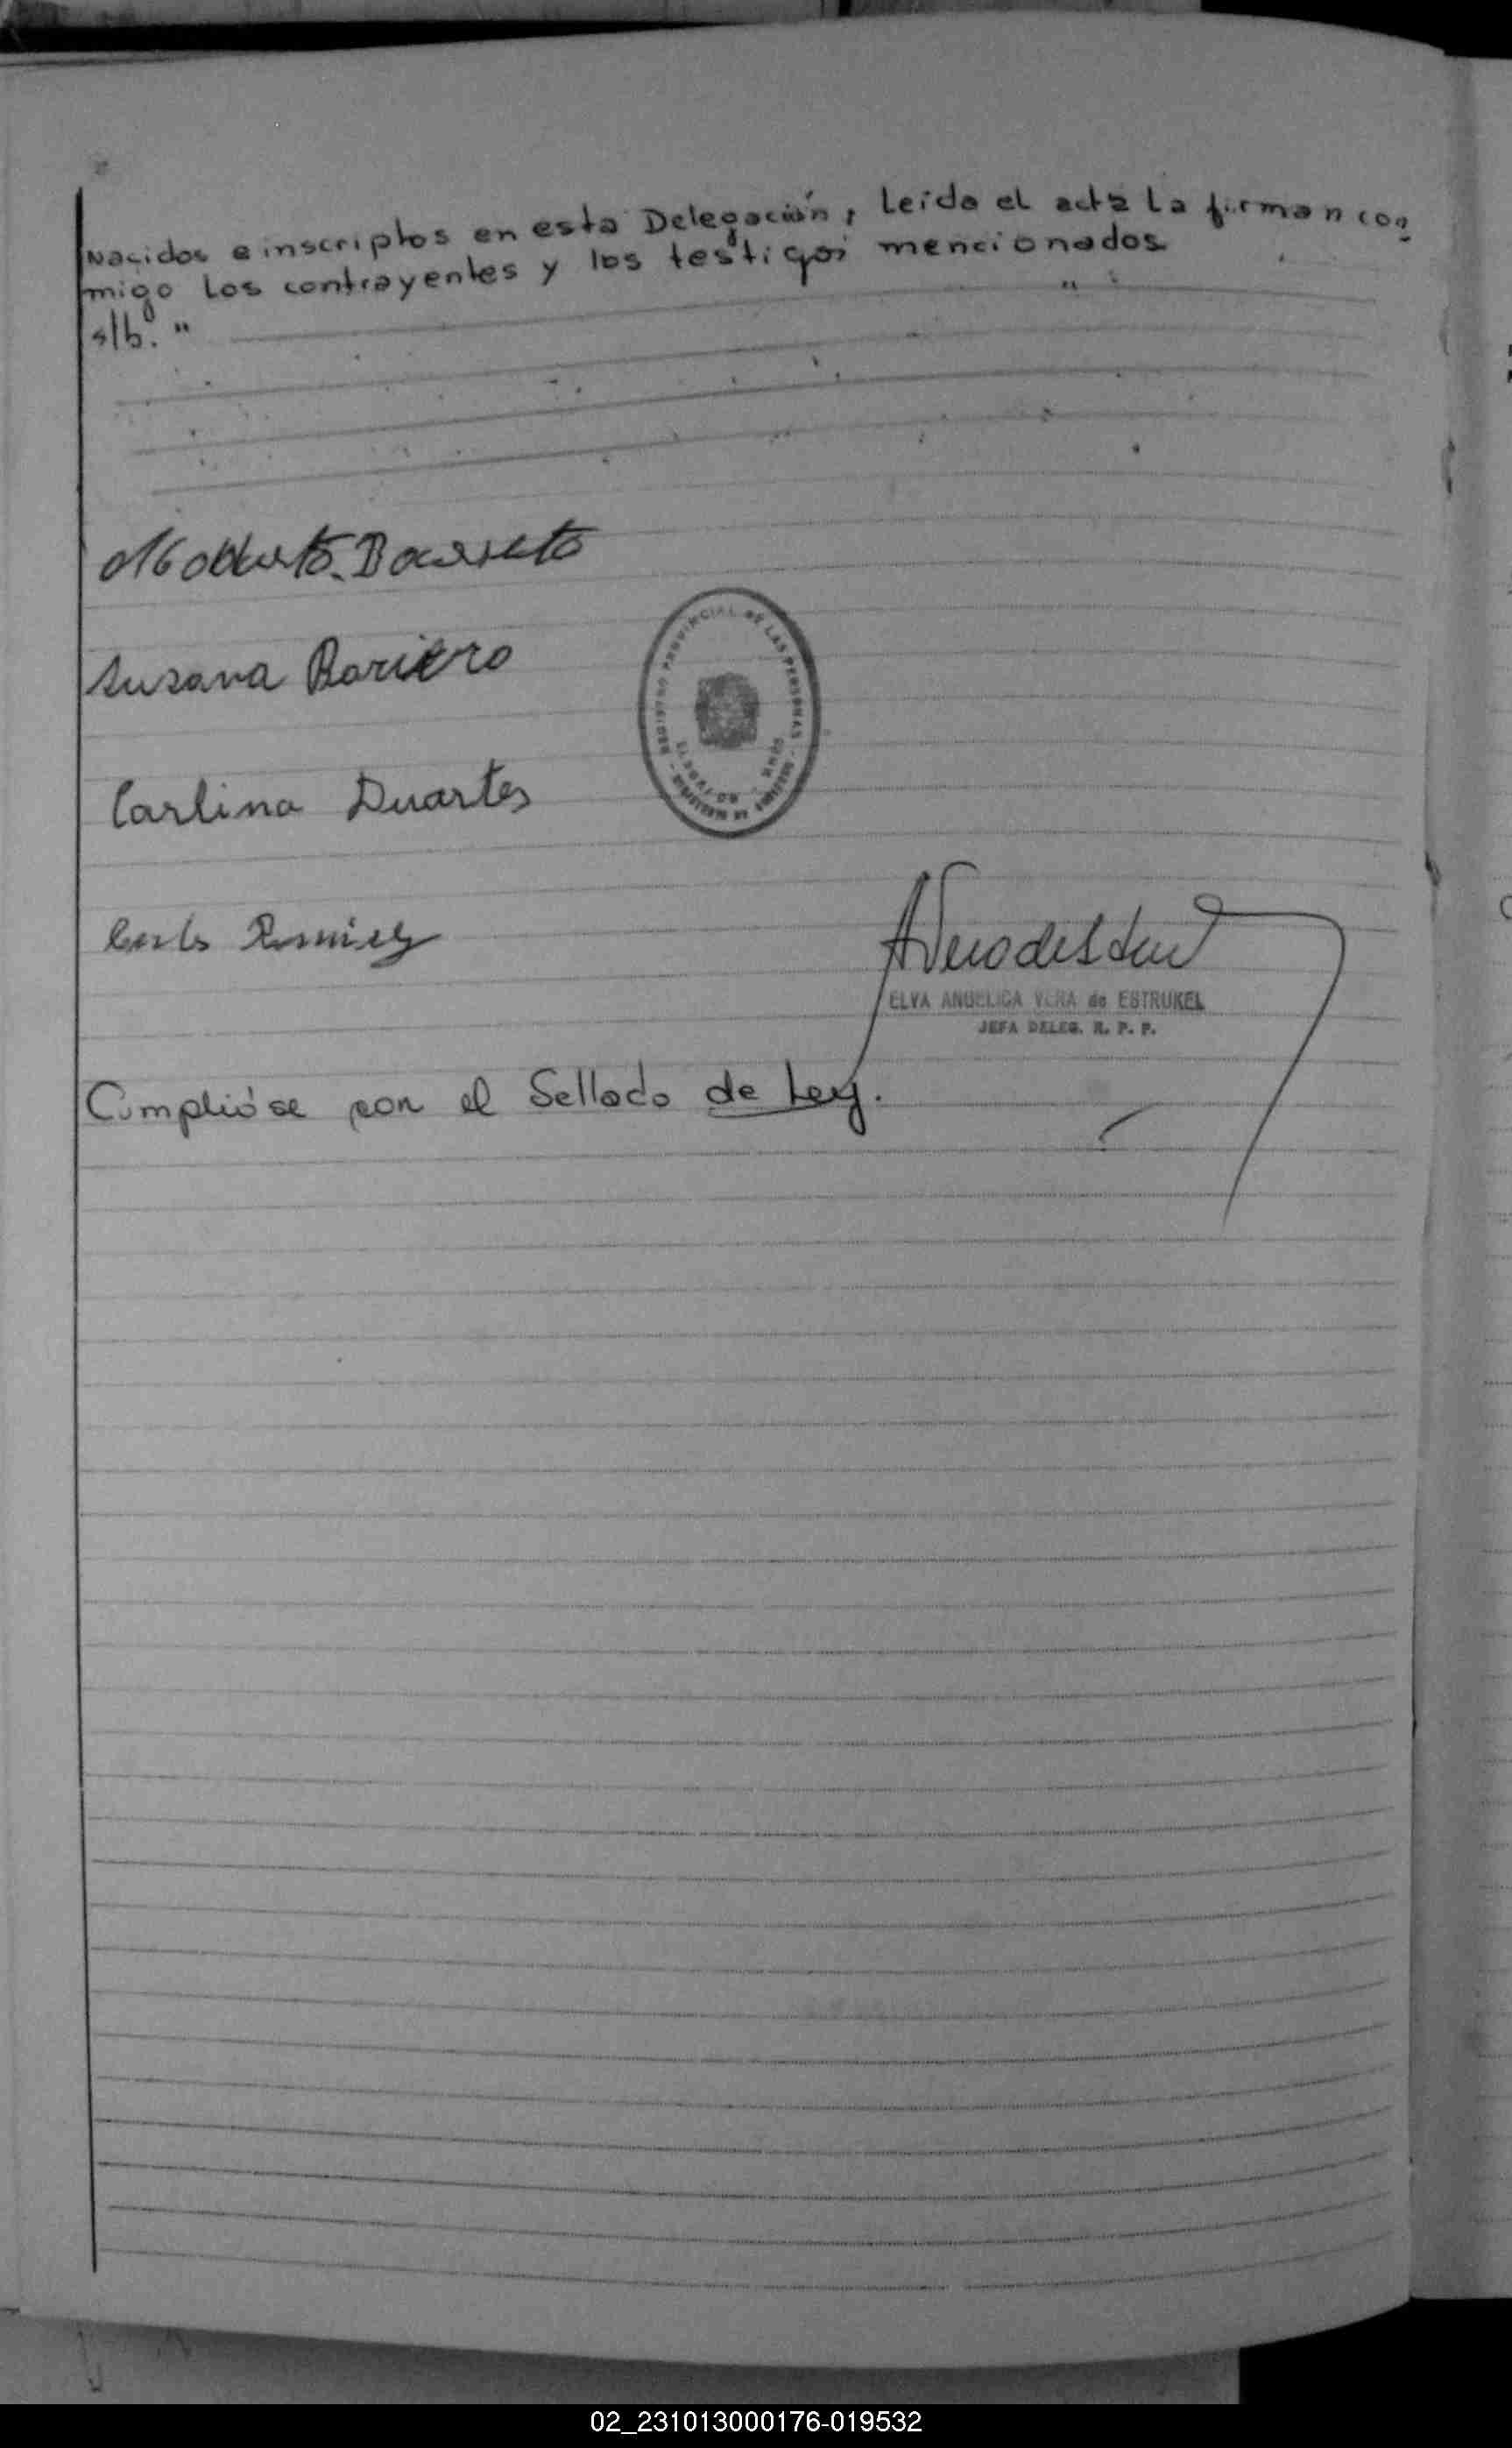 Nacidos e inscriptos en esta Delegación, Leída el acta La firman con
migo Los contrayentes y los testigos mencionados
s/b. "
Barreto
Susana Bariero
Carlina Duartes
REGISTRO PROVINCIAL DE LAS PERSONAS
Carlos Ramirez
ELVA ANGELICA VERA de ESTRUKEL
JEFA DELEG. R. P. P.
Cumplióse con el Sellado de Ley.
02_231013000176-019532